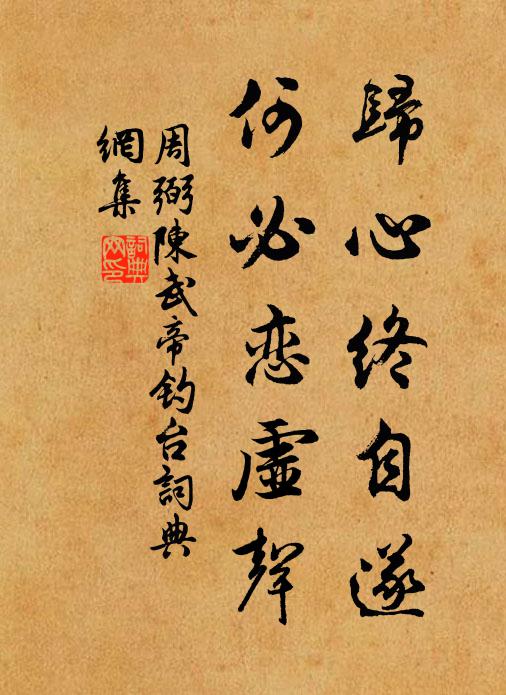 歸心終自遂
何必恋虛聲
周弼陳武帝釣台詞典
網集
詞典
网印